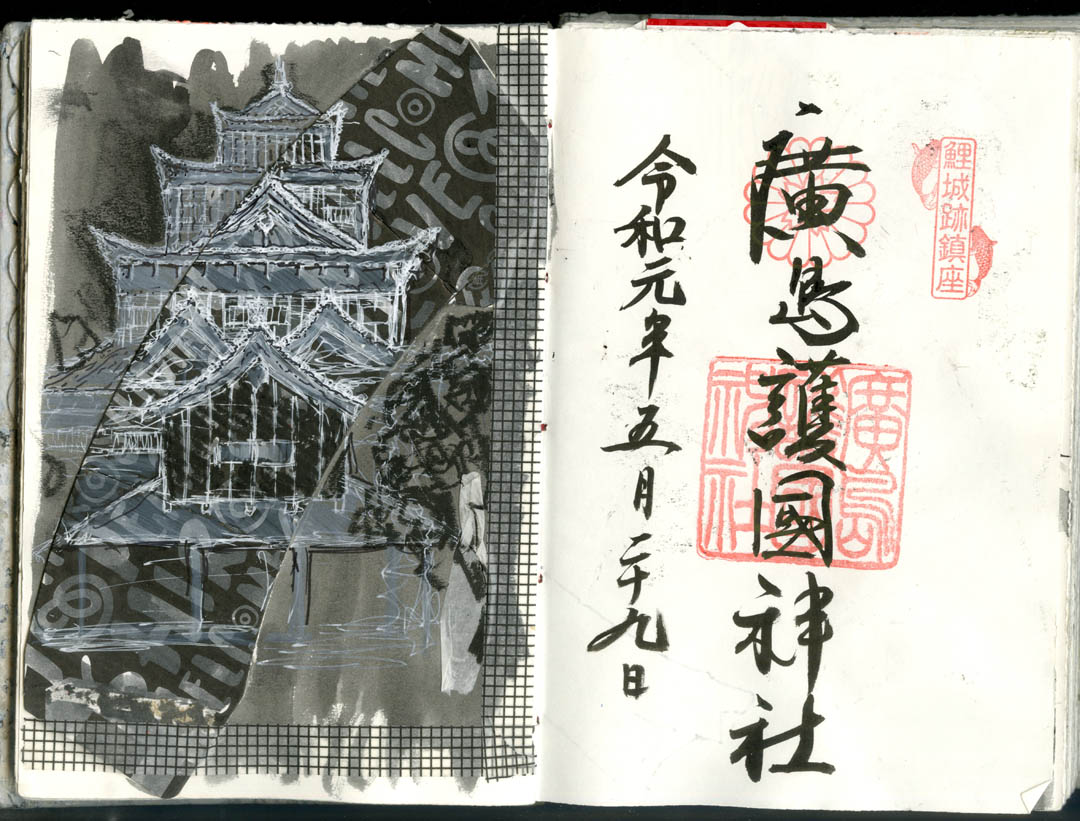 鯉城跡鎮座
廣島護國神社
廣島護國神社
令和元年五月二十九日
WELCOME